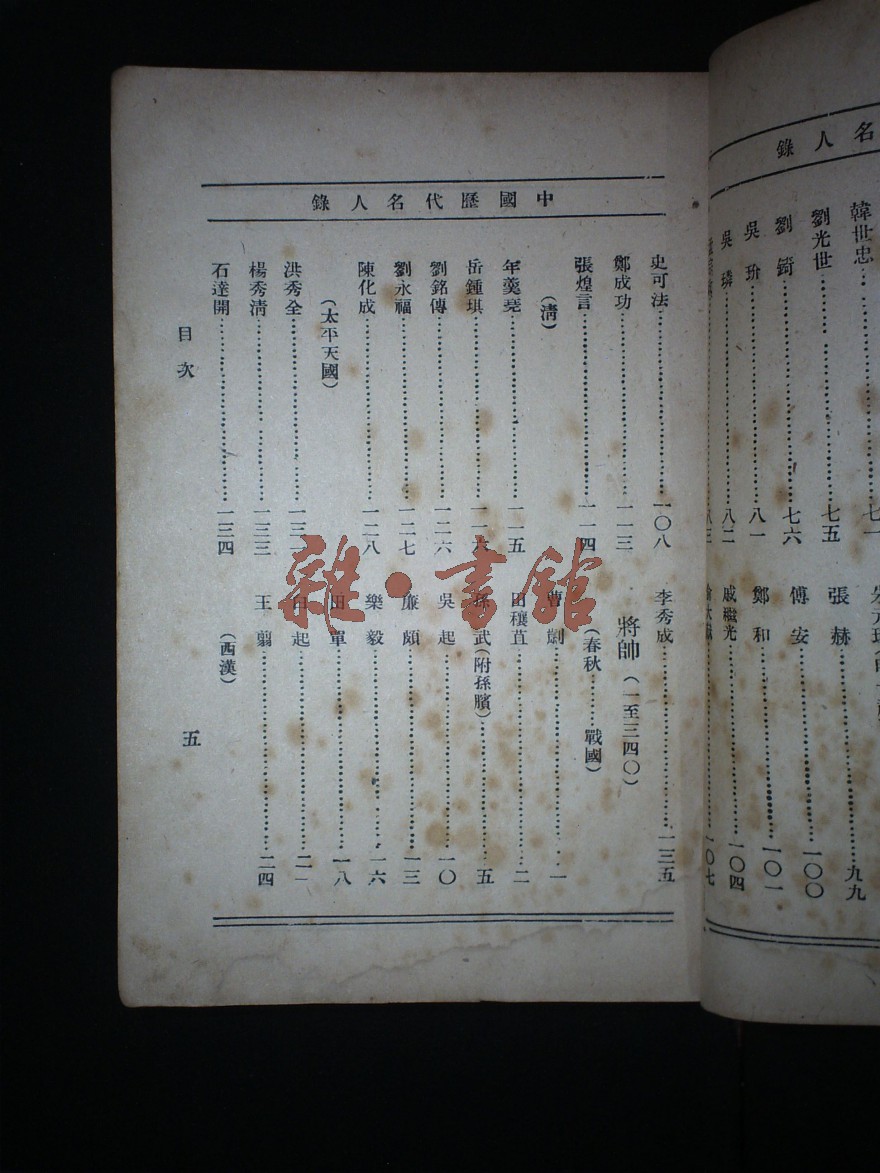 名人錄
韓世忠……七一
劉光世……七五
劉錡……七六
吳玠……八一
吳璘……八二
八三
張赫……九九
傅安……一〇〇
鄭和……一〇一
戚繼光……一〇四
一〇七
中國歷代名人錄
史可法……一〇八
鄭成功……一一三
張煌言……一一四
(清)
年羹堯……一一五
岳鍾琪……一一六
劉銘傳……一二六
劉永福……一二七
陳化成……一二八
(太平天國)
洪秀全……一三
楊秀清……一三三
石達開……一三四
李秀成……一三五
將帥(一至三四〇)
(春秋……戰國)
曹劌……一
田穰苴……二
孫武(附孫臏)……五
吳起……一〇
廉頗……一三
樂毅……一六
田單……一八
白起……二一
王翦……二四
(西漢)
目次
五
雜·書館